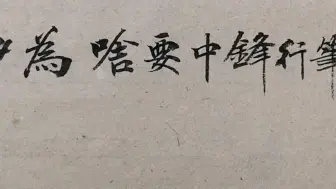 為啥要中鋒行筆